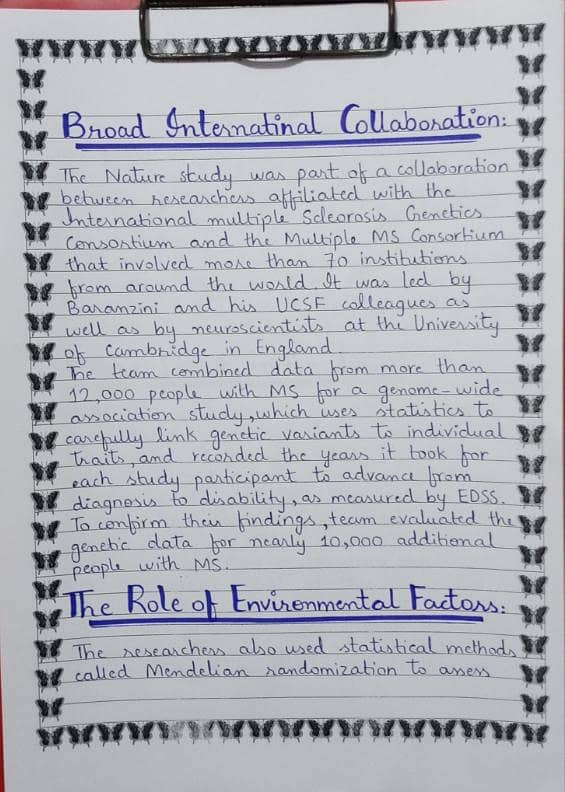 Broad Internatinal Collaboration:
The Nature study was part of a collaboration
between researchers affiliated with the
International multiple Scleorosis Genetics
Consortium and the Multiple MS Consortium
that involved more than 70 institutions
from around the world. It was led by
Baranzini and his UCSF colleagues as
well as by neuroscientists at the University
of Cambridge in England.
The team combined data from more than
12,000 people with MS for a genome-wide
association study, which uses statistics to
carefully link genetic variants to individual
traits, and recorded the years it took for
each study participant to advance from
diagnosis to disability, as measured by EDSS.
To confirm their findings, team evaluated the
genetic data for nearly 10,000 additional
people with MS.
The Role of Environmental Factors:
The researchers also used statistical methods
called Mendelian randomization to assess